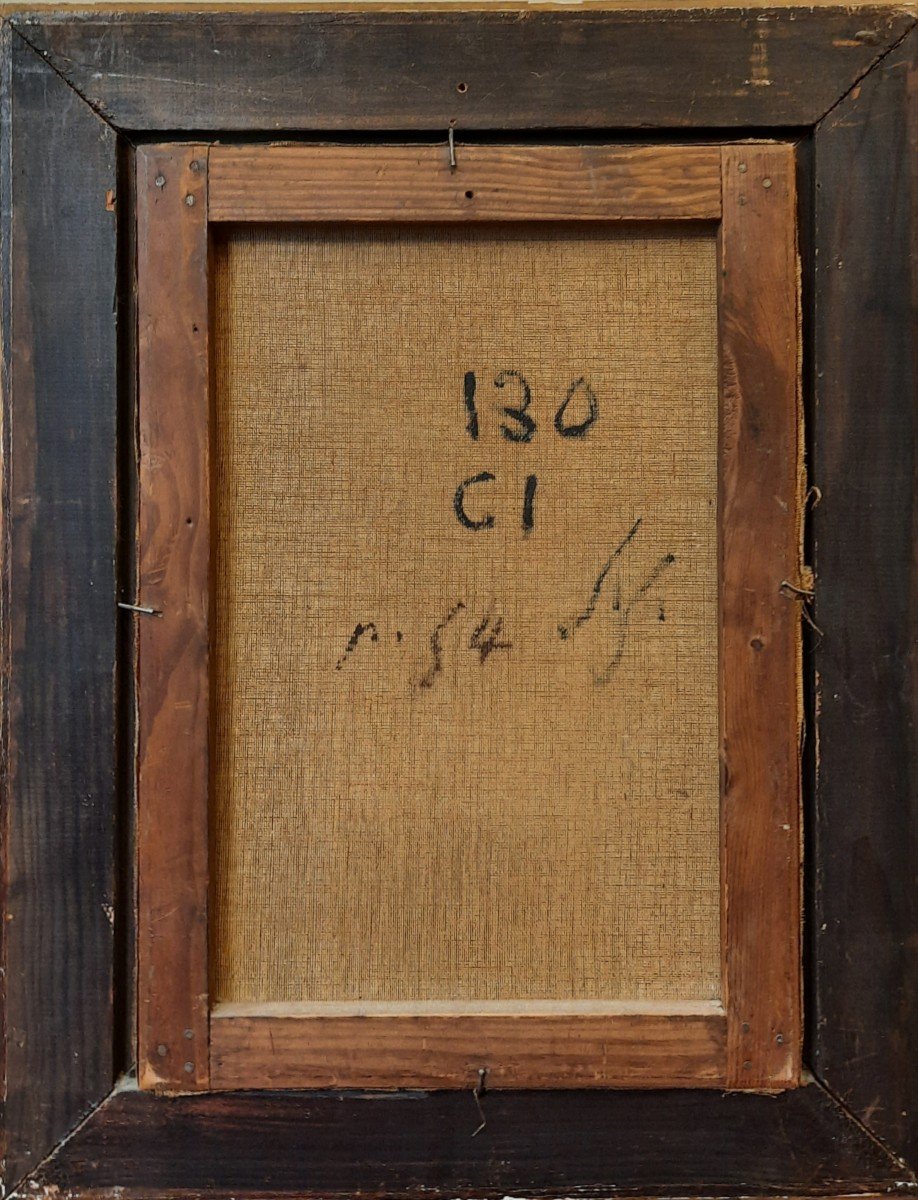 130
C1
n. 54